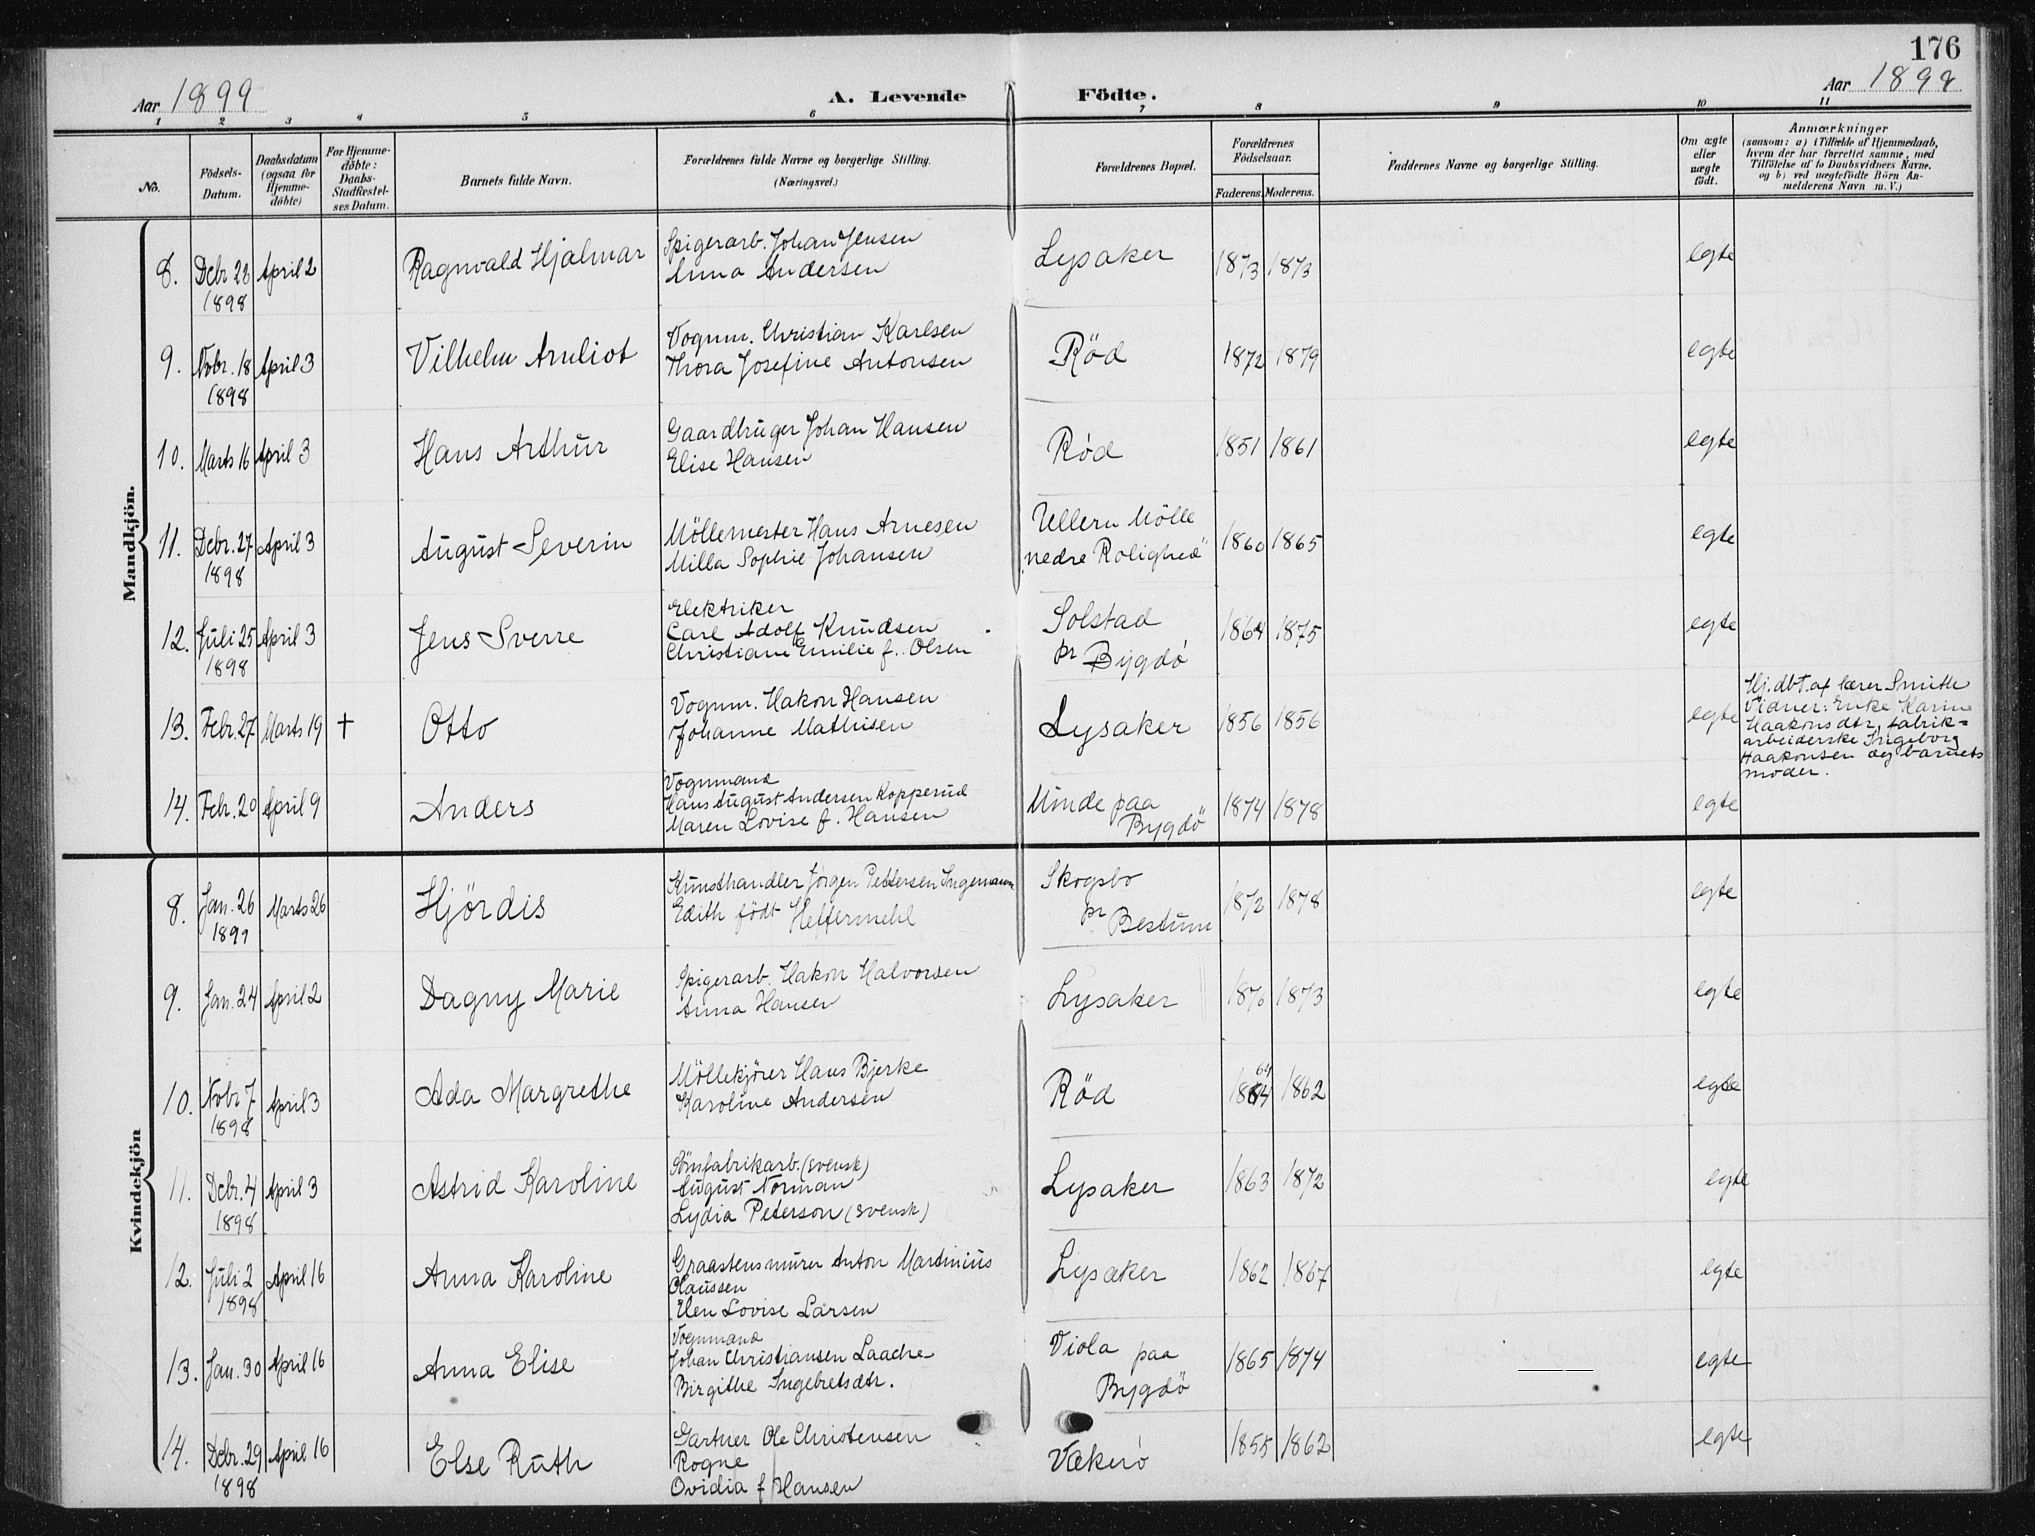 176
Aar 1899 A. Levende Födte. Aar 1899
1 2 3 4 5 6 7 8 9 10 11
No.
Födsels-Datum.
Daabsdatum (ogsaa for Hjemme-döbte)
For Hjemme-döbte: Daabs-Stadfæstel-ses Datum.
Barnets fulde Navn.
Forældrenes fulde Navne og borgerlige Stilling.
(Næringsvei.)
Forældrenes Bopæl.
Forældrenes Födselsaar.
Faderens. Moderens.
Faddernes Navne og borgerlige Stilling.
Om ægte eller uægte födt.
Anmærkninger
(saasom: a) i Tilfælde af Hjemmedaab,
hvem der har forrettet samme, med
Tilföielse af to Daabsvidners Navne.
og b) ved uægtefödte Börn An-
melderens Navn m. V.)
Mandkjön.
8. Debr 23 1898 April 2 Ragnvald Hjalmar Spigerarb. Johan Jensen
Anna Andersen Lysaker 1873 1873 egte
9. Nobr. 18 1898 April 3 Vilhelm Arnliot Vognm. Christian Karlsen
Thora Josefine Antonsen Röd 1872 1879 egte
10. Marts 16 April 3 Hans Arthur Gaardbruger Johan Hansen
Elise Hansen Röd 1851 1861 egte
11. Debr. 27 1898 April 3 August Severin Möllemester Hans Arnesen
Milla Sophie Johansen Ullern Mölle
"nedre Rolighed" 1860 1865 egte
12. Juli 25 1898 April 3 Jens Sverre Elektriker
Carl Adolf Knudsen
Christiane Emilie f. Olsen Solstad
pr Bygdö 1864 1875 egte
13. Febr. 27 Marts 19 † Otto Vognm. Hakon Hansen
Johanne Mathisen Lysaker 1856 1856 egte
Hj. dbt. af lærer Smith
Vidner: Enke Karine
Haakonsdtr, fabrik=
arbeiderske Ingeborg
Haakonsen og barnets
moder.
14. Febr. 20 April 9 Anders Vognmand
Hans August Andersen Kopperud
Maren Lovise f. Hansen Minde paa
Bygdö 1874 1878 egte
Kvindekjön
8. Jan. 26 1899 Marts 26 Hjördis Kunsthandler Jörgen Pettersen Ingemann
Edith födt Heffermehl Skogsbo
pr Bestum 1872 1878 egte
9. Jan. 24 April 2 Dagny Marie Spigerarb. Hakon Halvorsen
Anna Hansen Lysaker 1876 1873 egte
10. Nobr 7 1898 April 3 Ada Margrethe Möllekjörer Hans Bjerke
Karoline Andersen Röd 64 1862 egte
11. Debr. 4 1898 April 3 Astrid Karoline Sömfabrikarb. (svensk)
August Norman
Lydia Peterson (svensk) Lysaker 1863 1872 egte
12. Juli 2 1898 April 16 Anna Karoline Graastensmurer Anton Martinius
Claussen
Elen Lovise Larsen Lysaker 1862 1867 egte
13. Jan. 30 April 16 Anna Elise Vognmand
Johan Christiansen Laache
Birgithe Ingebretsdtr. Viola paa
Bygdö 1865 1874 egte
14. Debr. 29 1898 April 16 Else Ruth Gartner Ole Christensen
Rogne
Ovidia f Hansen Vækerö 1855 1862 egte